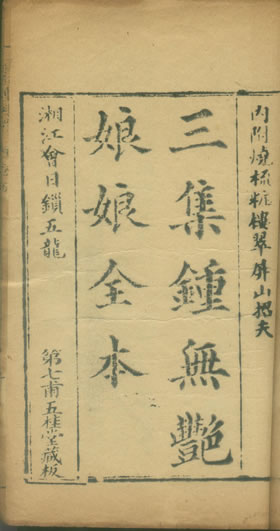 內附燒梳粧樓翠屏山招夫
三集鍾無艷
娘娘全本
湘江會日鎖五龍
第七甫五桂堂藏板